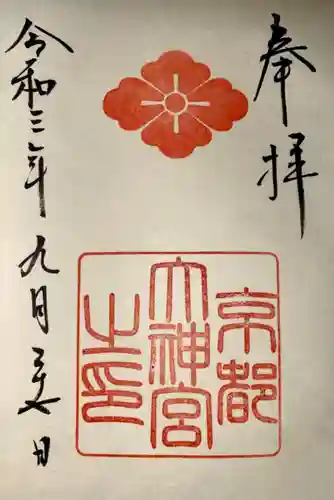 奉拝
京都
大神宮
之印
令和三年九月 日